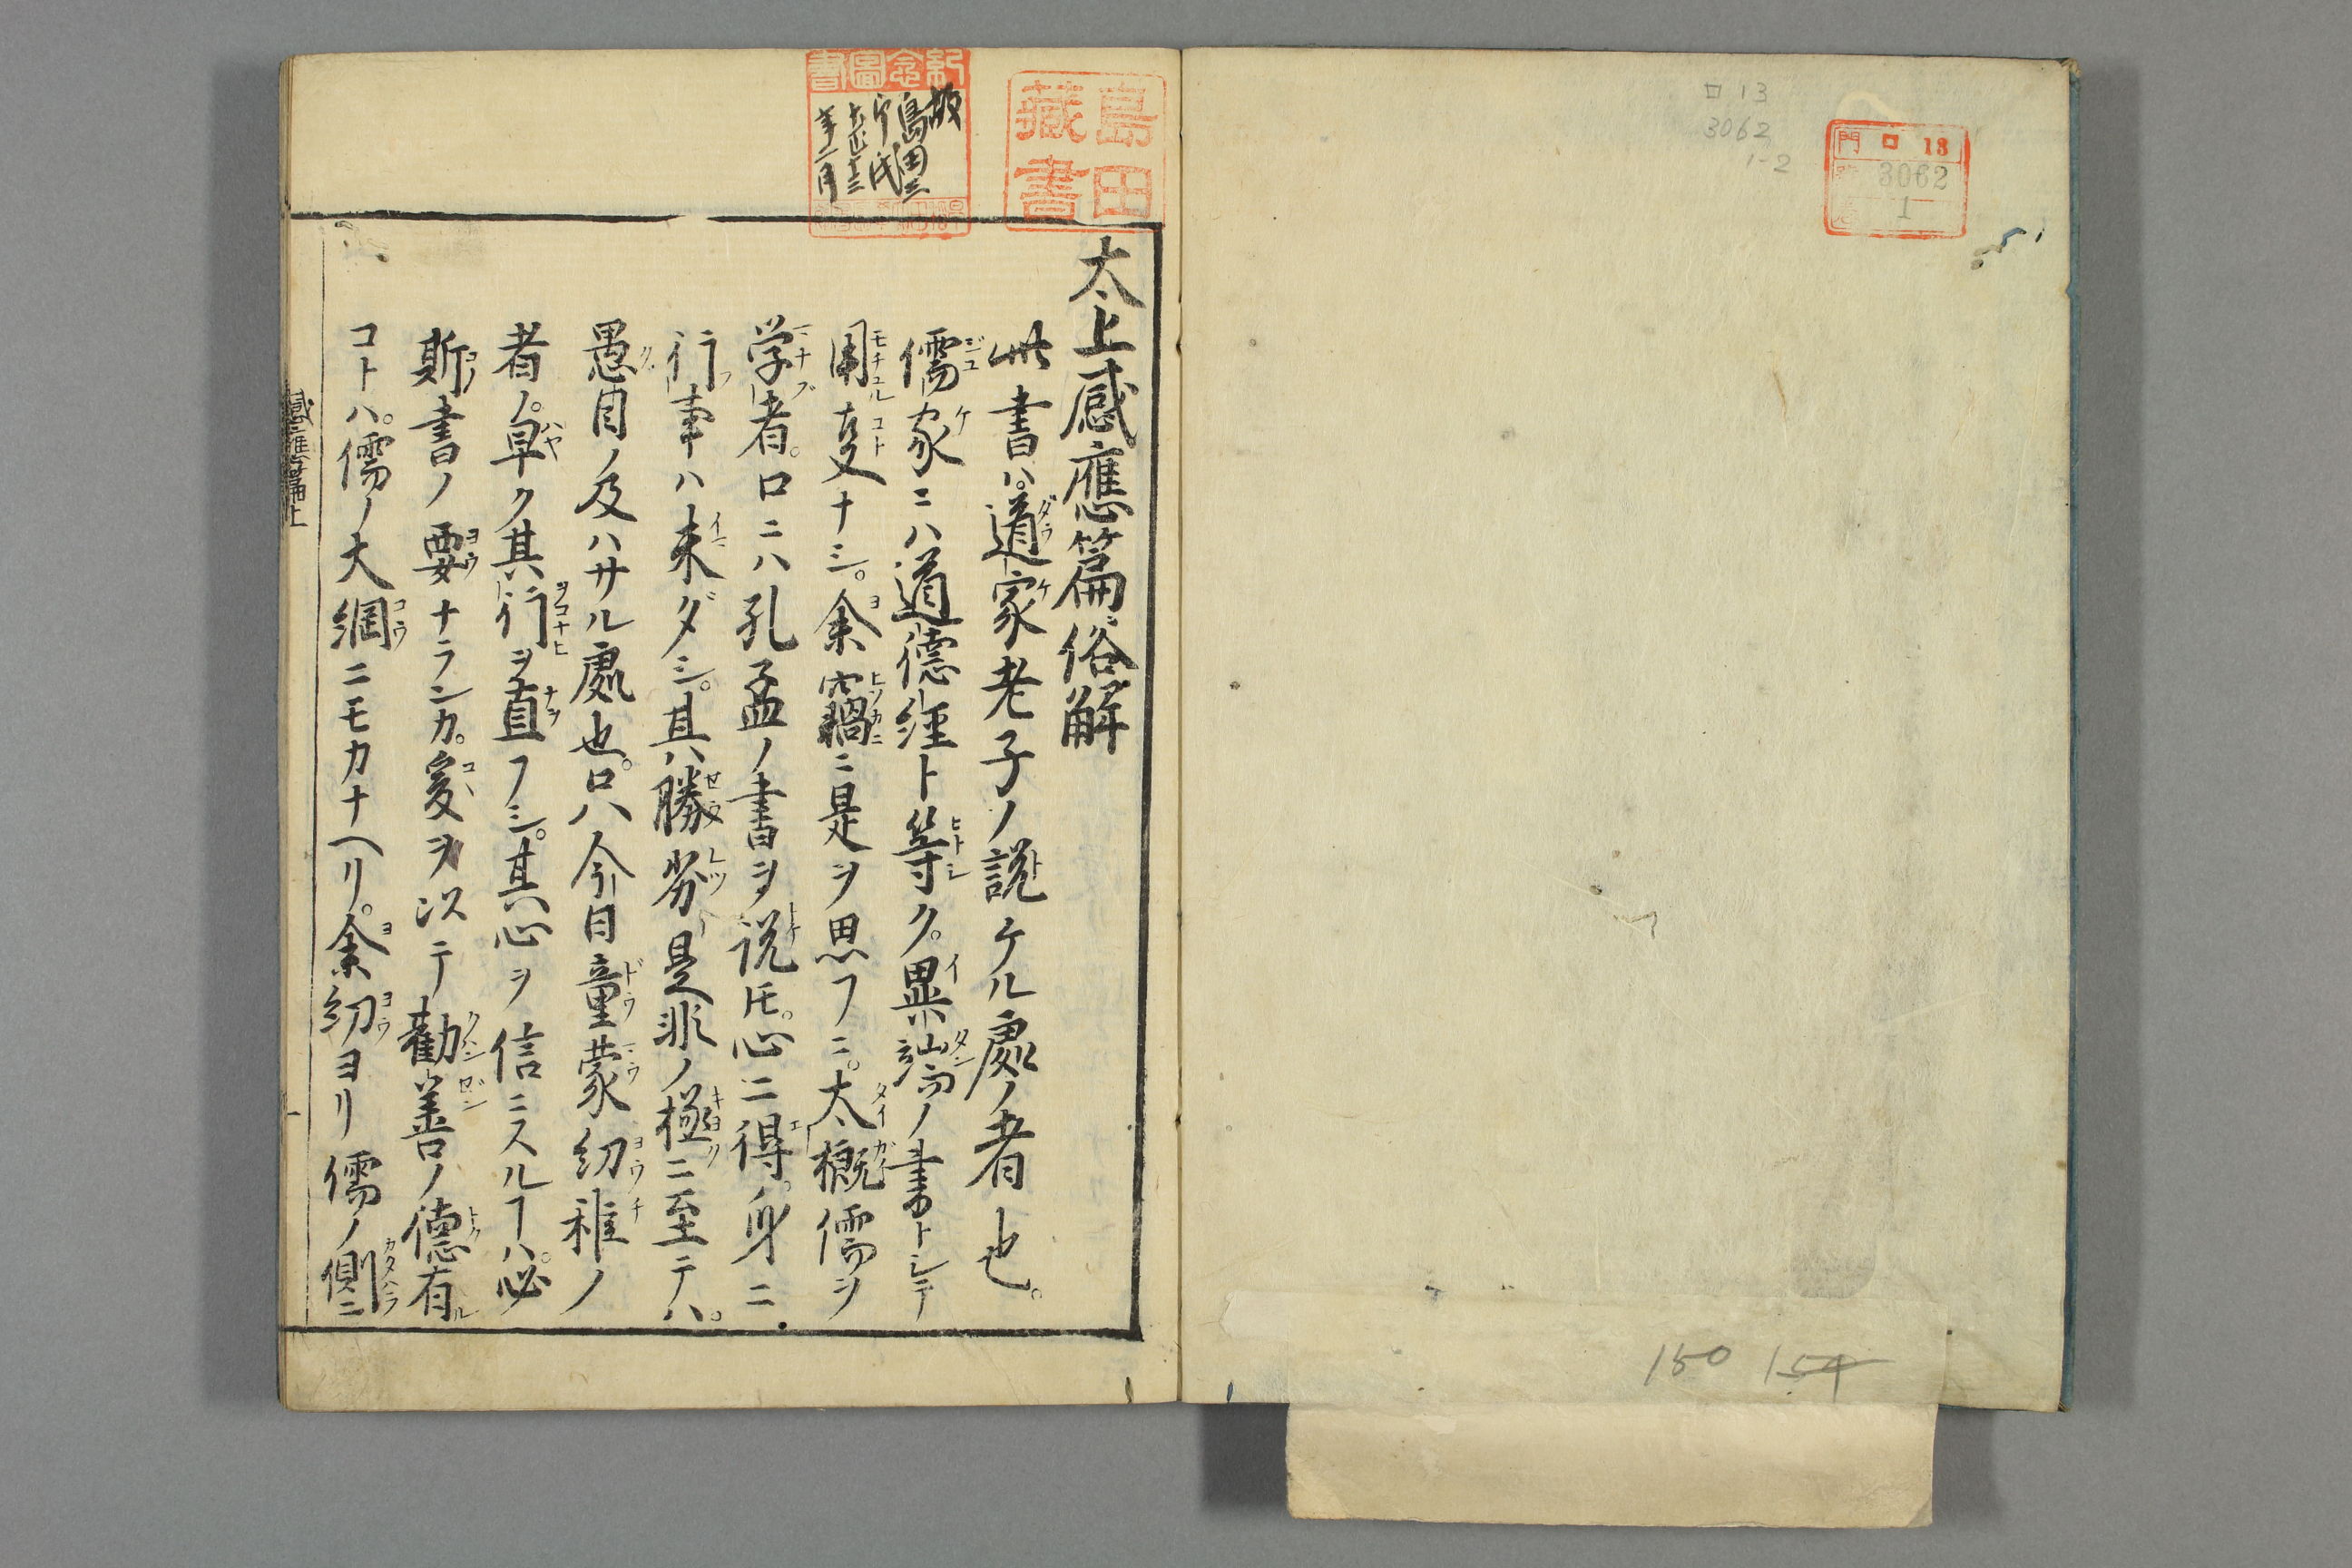 口 13
3062
1-2
門 口 13
3062
1
150 154
島田
藏書
紀念圖書
故
島田三
大正十三
年二月
太上感應篇俗解
此書ハ。道家老子ノ説ケル處ノ者也。
儒家ニハ道德經ト等ク。異端ノ書トシテ
用ユルコトナシ。余竊ニ是ヲ思フニ。太概儒ヲ
学者。口ニハ孔孟ノ書ヲ説𪜈。心ニ得。身ニ
行事ハ未ダシ。其勝劣是非ノ極ニ至テハ。
愚目ノ及ハサル處也。只今日童蒙幼稚ノ
者ノ。早ク其行ヲ直フシ。其心ヲ信ニスルヿハ。必
斯書ノ要ナランカ。爰ヲ以テ勸善ノ德有
コトハ。儒ノ大綱ニモカナヘリ。余幼ヨリ儒ノ側ニ
感應篇上
一